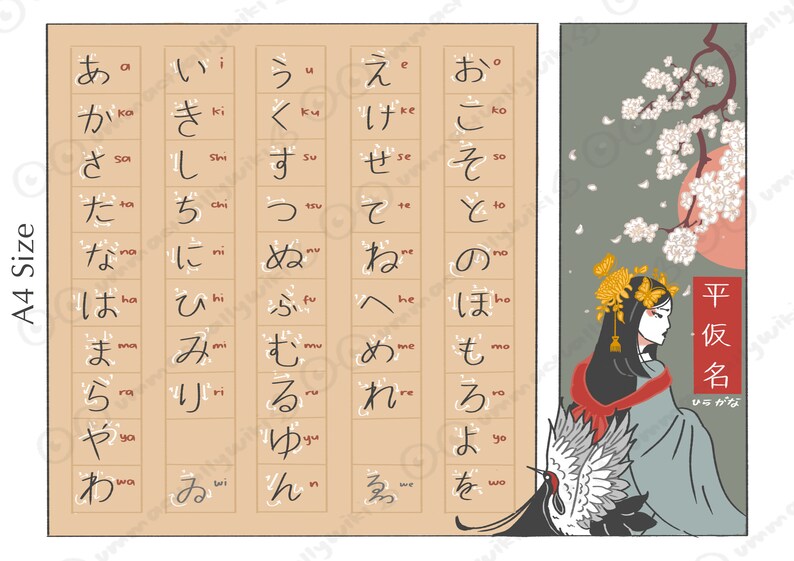 A4 Size
あ a い i う u え e お o
か ka き ki く ku け ke こ ko
さ sa し shi す su せ se そ so
た ta ち chi つ tsu て te と to
な na に ni ぬ nu ね ne の no
は ha ひ hi ふ fu へ he ほ ho
ま ma み mi む mu め me も mo
ら ra り ri る ru れ re ろ ro
や ya ゆ yu よ yo
わ wa ゐ wi ん n ゑ we を wo
平仮名
ひらがな
ummactuallywiki